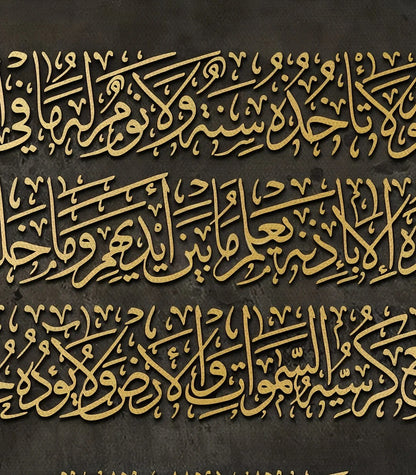 لَا تَأْخُذُهُ سِنَةٌ وَلَا نَوْمٌ لَهُ مَا فِي
إِلَّا بِإِذْنِهِ يَعْلَمُ مَا بَيْنَ أَيْدِيهِمْ وَمَا
كُرْسِيُّهُ السَّمَوَاتِ وَالْأَرْضَ وَلَا يَؤُدُهُ